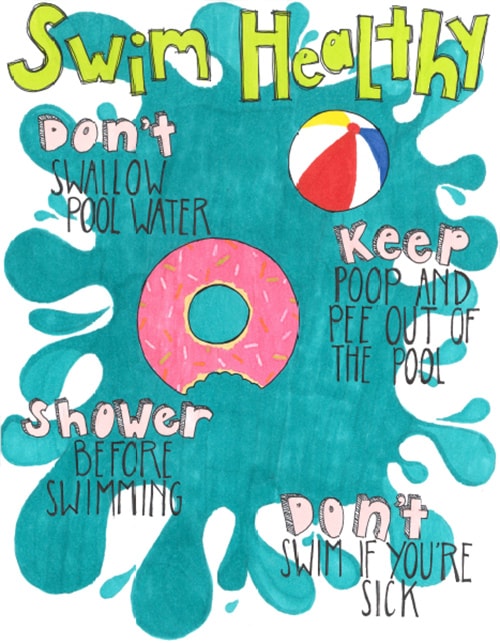 Swim Healthy
Don't
SWALLOW
POOL WATER
Keep
POOP AND
PEE OUT OF
THE POOL
Shower
BEFORE
SWIMMING
Don't
SWIM IF YOU'RE
SICK